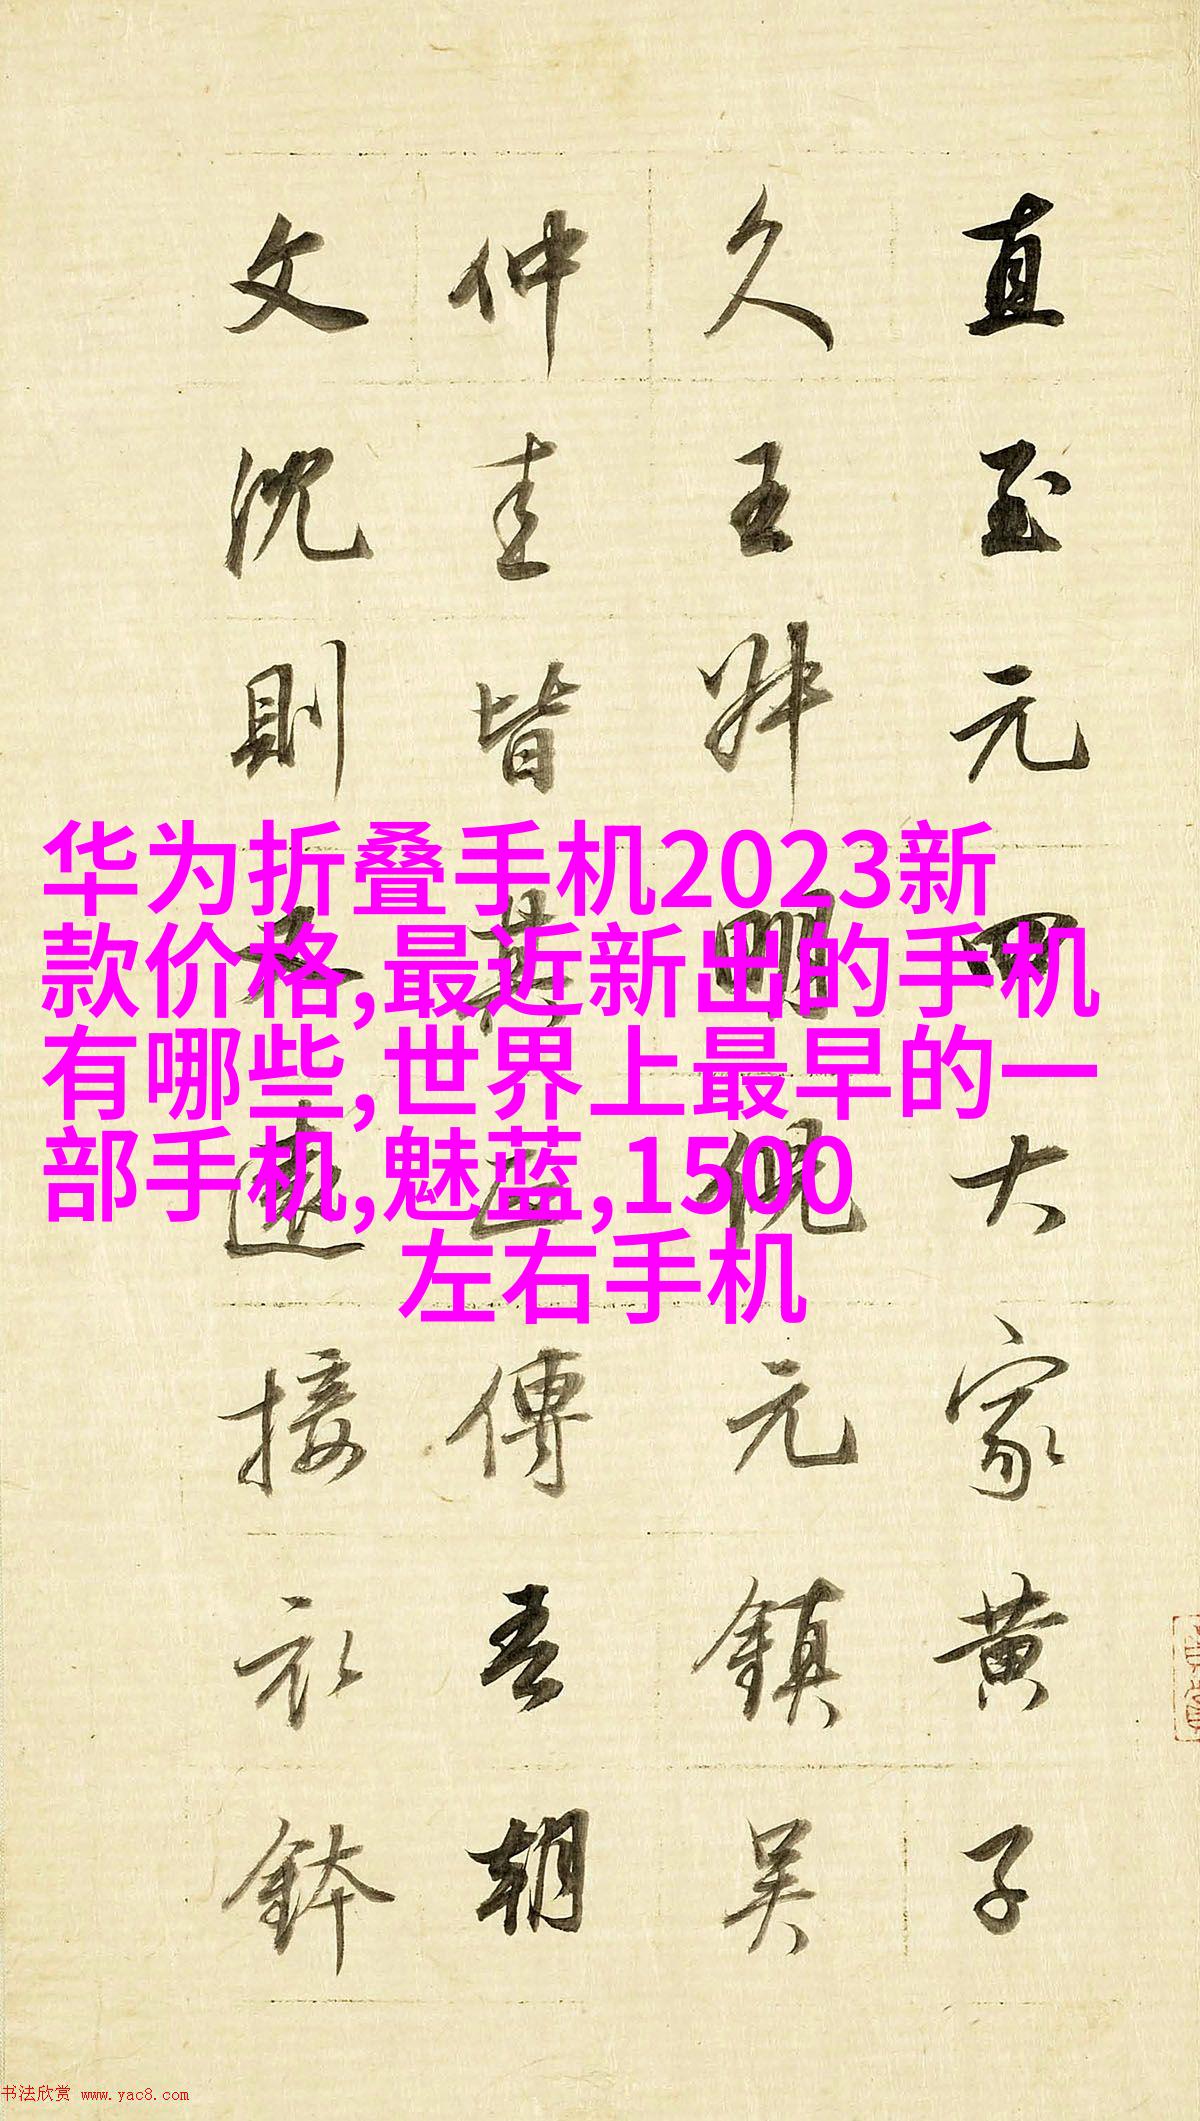 直至元四大家黄子
久王叔明倪元鎮吴
仲圭皆其正傳吾朝
文沈則又遠接衣鉢
华为折叠手机2023新
款价格,最近新出的手机
有哪些,世界上最早的一
部手机,魅蓝,1500
左右手机
书法欣赏 www.yac8.com